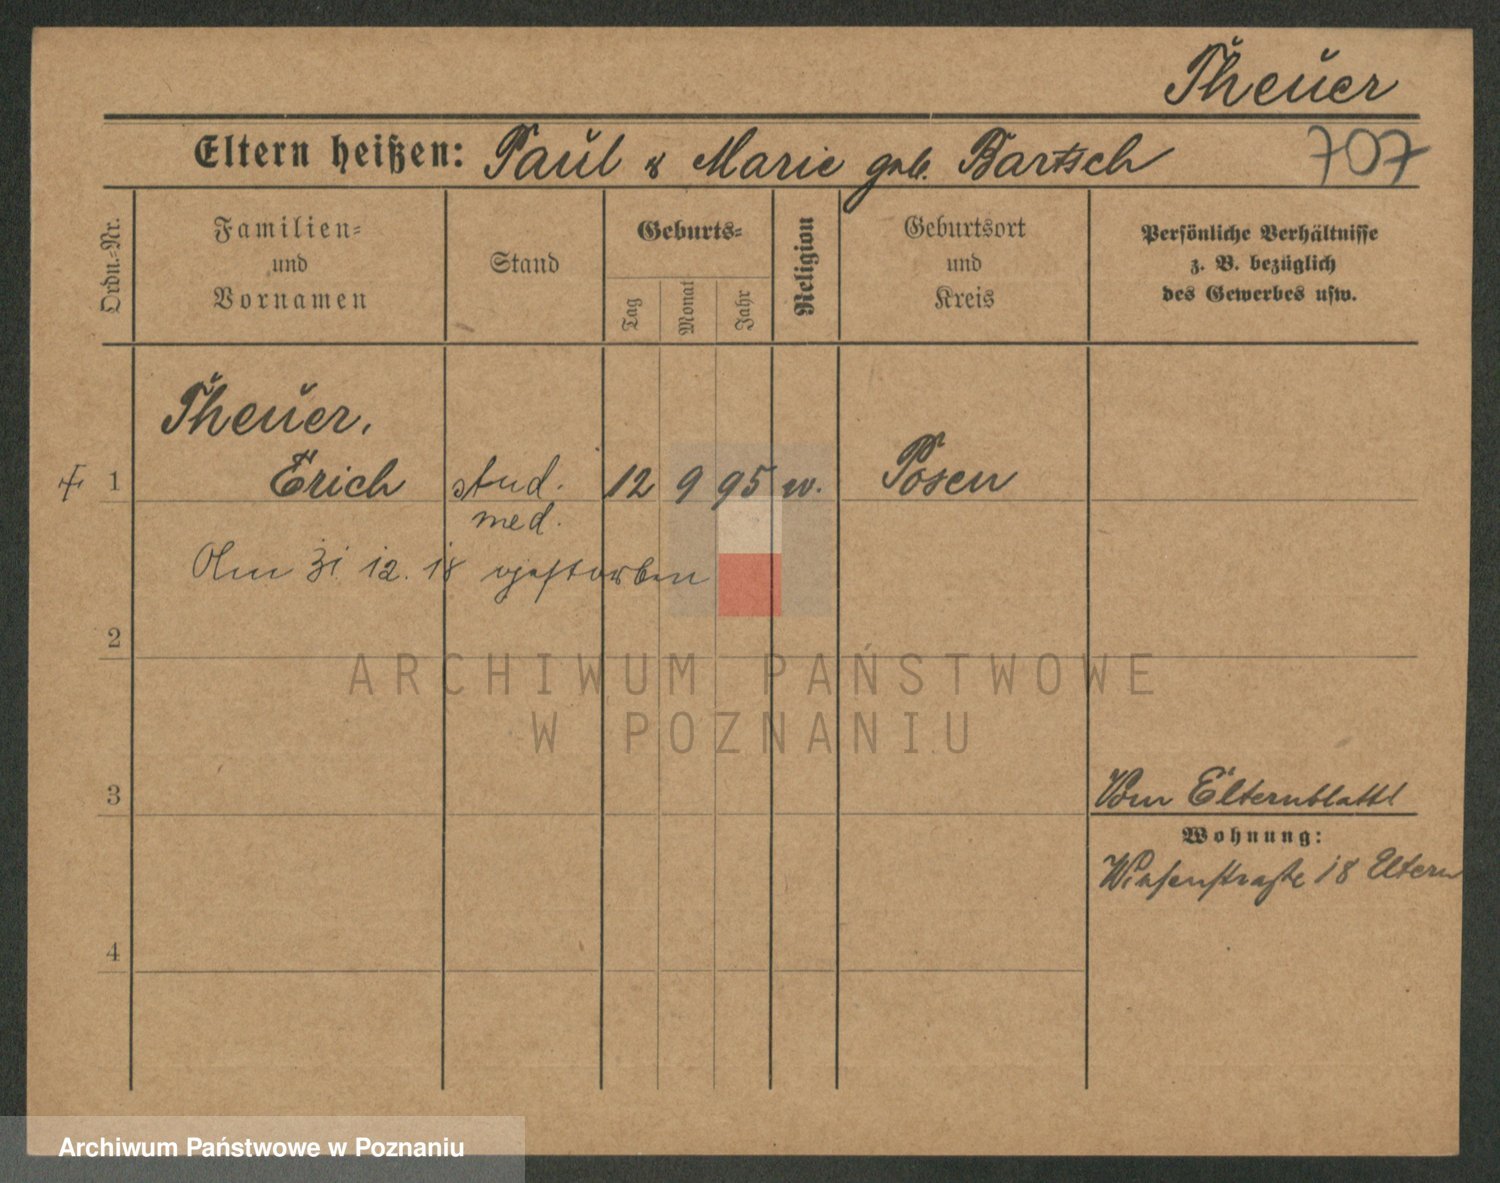 Theuer
Eltern heißen: Paul & Marie geb. Bartsch 707
Ordn.-Nr.
Familien-
und
Vornamen
Stand
Geburts-
Tag
Monat
Jahr
Religion
Geburtsort
und
Kreis
Persönliche Verhältnisse
z. B. bezüglich
des Gewerbes usw.
Theuer,
1 Erich stud. 12 9 95 Posen
med.
Am 31 12. 18 gestorben
2
ARCHIWUM PAŃSTWOWE
W POZNANIU
3 Vom Elternblatt
Wohnung:
Wiesenstraße 18 Eltern
4
Archiwum Państwowe w Poznaniu